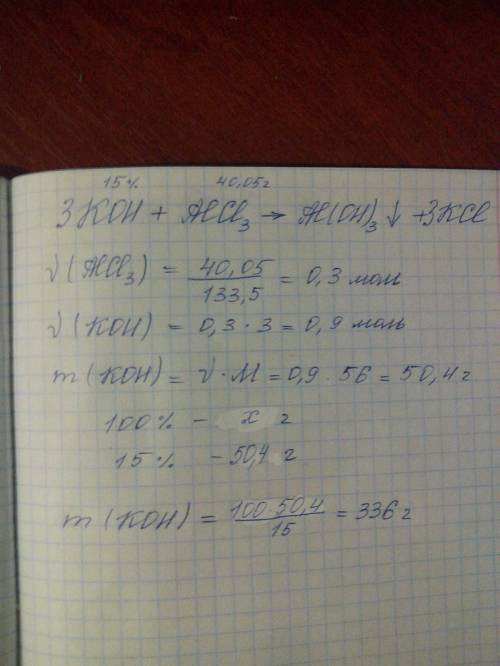 15% 40,05г
3KOH + AlCl₃ → Al(OH)₃↓ + 3KCl
ν(AlCl₃) = 40,05/133,5 = 0,3 моль
ν(KOH) = 0,3 · 3 = 0,9 моль
m(KOH) = ν · M = 0,9 · 56 = 50,4 г
100% – x г
15% – 50,4 г
m(KOH) = 100·50,4/15 = 336 г